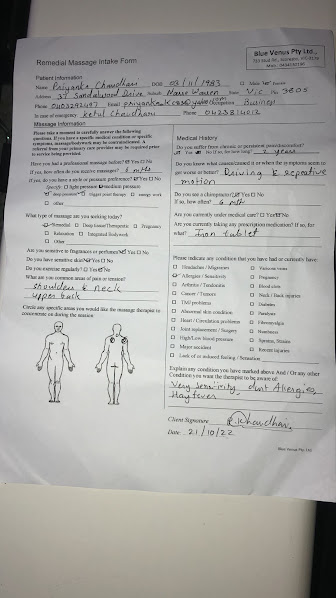 Remedial Massage Intake Form
Blue Venus Pty Ltd.,
Patient Information
Name Priyanka Chaudhari DOB 03/11/1983 Male Female
Address 37 Sandalwood Drive Suburb Narre Warren State Vic Pin 3805
Phone 0403292497 Email Occupation Business
In case of emergency Ketul Chaudhari Phone 0423814012
Massage Information
Please take a moment to carefully answer the following
questions. If you have a specific medical condition or specific
symptoms, massage/bodywork may be contraindicated. A
referral from your primary care provider may be required prior
to service being provided.
Have you had a professional massage before? Yes No
If yes, how often do you receive massages? 6 mths
If yes, do you have a style or pressure preference? Yes No
Specify light pressure medium pressure
deep pressure trigger point therapy energy work
other
What type of massage are you seeking today?
Remedial Deep tissue/Therapeutic Pregnancy
Relaxation Integrated Bodywork
Other
Are you sensitive to fragrances or perfumes? Yes No
Do you have sensitive skin? Yes No
Do you exercise regularly? Yes No
What are you common areas of pain or tension?
shoulders & neck
upper back
Circle any specific areas you would like the massage therapist to
concentrate on during the session
Medical History
Do you suffer from chronic or persistent pain/discomfort?
Yes No If so, for how long? 2 years
Do you know what causes/caused it or when the symptoms seem to
get worse or better? Driving & repeative
motion
Do you see a chiropractor? Yes No
If so, how often? 6 mth
Are you currently under medical care? Yes No
Are you currently taking any prescription medication? If so, for
what? Iron tablet
Please indicate any condition that you have had or currently have:
Headaches / Migraines
Varicose veins
Allergies / Sensitivity
Pregnancy
Arthritis / Tendonitis
Blood clots
Cancer / Tumors
Neck / Back injuries
TMJ problems
Diabetes
Abnormal skin condition
Paralysis
Heart / Circulation problems
Fibromyalgia
Joint replacement / Surgery
Numbness
High/Low blood pressure
Sprains, Strains
Major accident
Recent injuries
Lack of or reduced feeling / Sensation
Explain any condition you have marked above And / Or any other
Condition you want the therapist to be aware of:
Very Sensitivity, dust Allergies,
Hayfever
Client Signature P. Chaudhari
Date 21/10/22
Blue Venus Pty Ltd